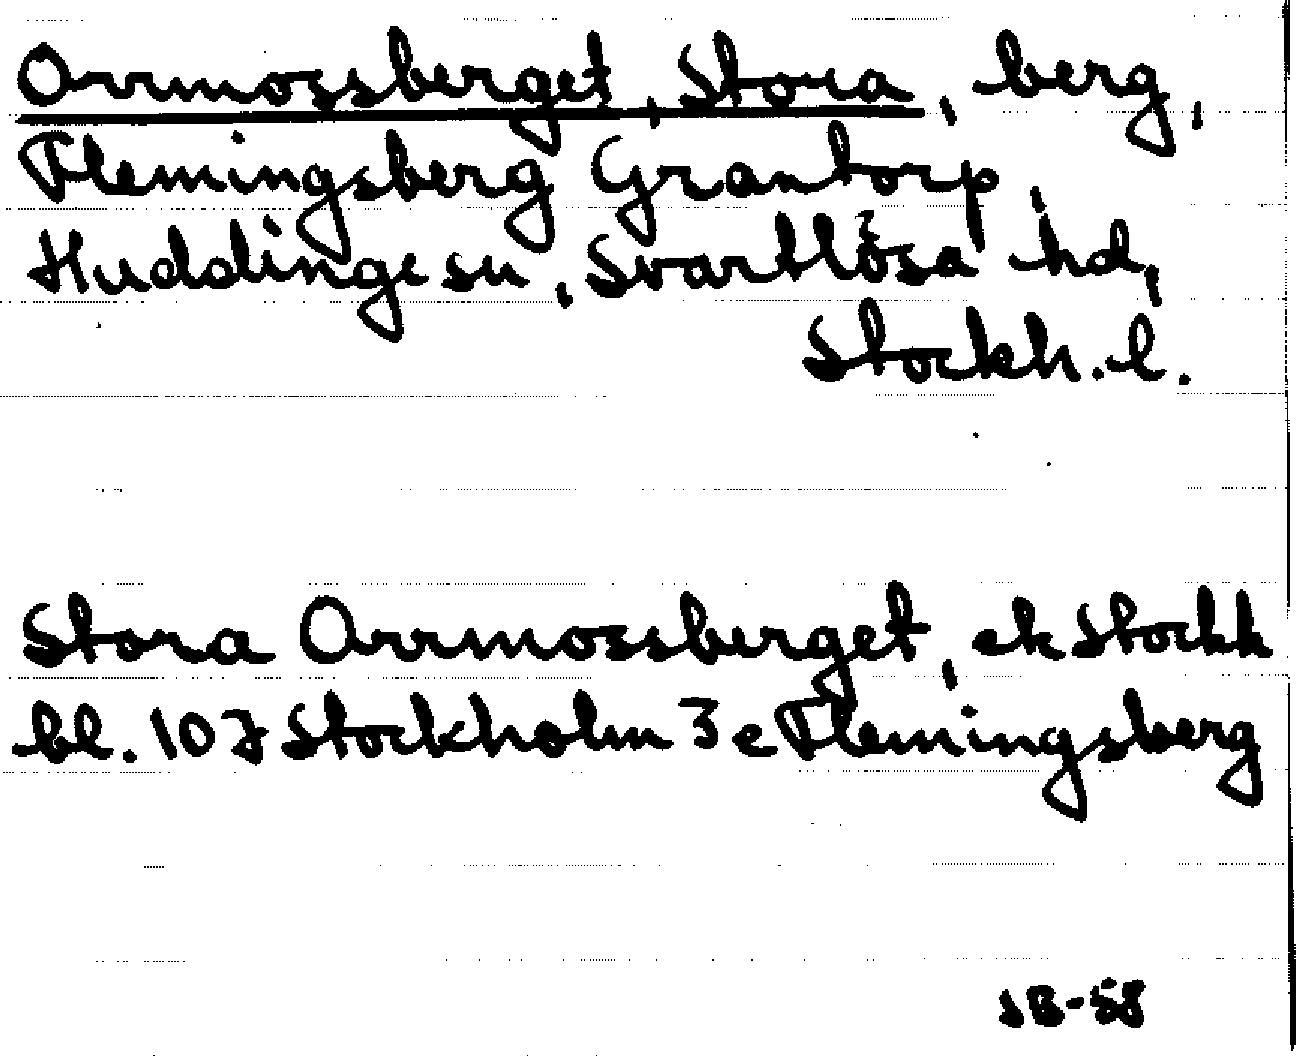 Orrmossberget, Stora, berg,
Flemingsberg Grantorp,
Huddinge sn, Svartlösa hd,
Stockh. l.
Stora Orrmossberget, ek Stockh
bl. 107 Stockholm 3e Flemingsberg
JB-58